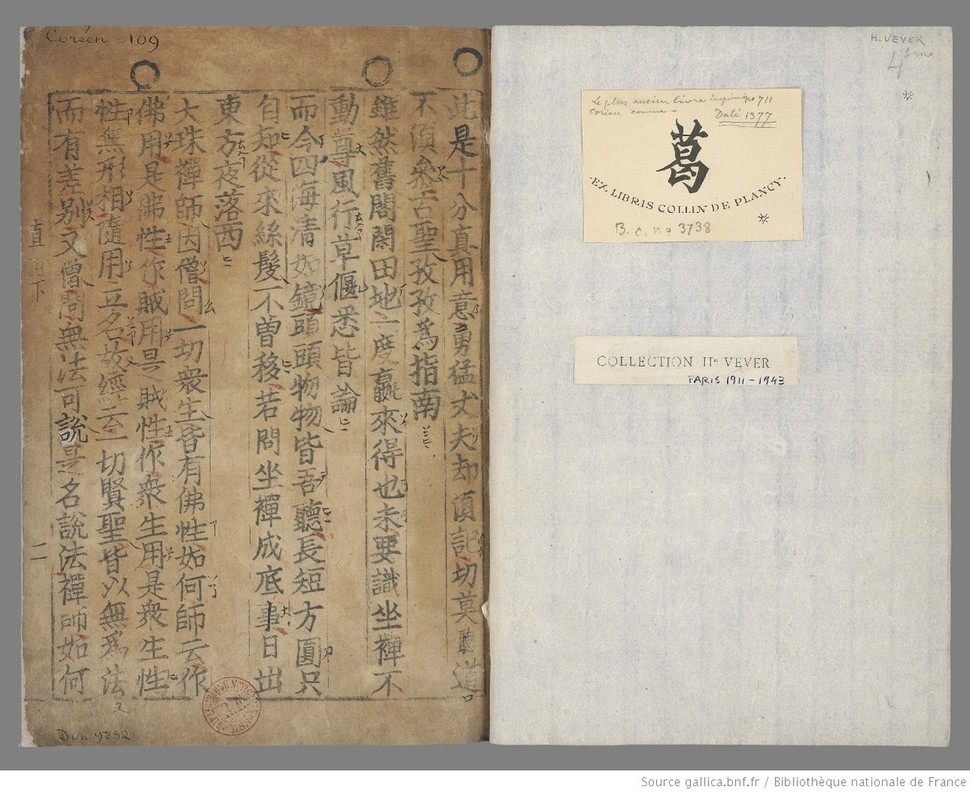 Coréen 109
此是十分真用意勇猛丈夫却須記切莫聽道
不須叅古聖孜孜爲指南
雖然舊閣閑田地一度贏來得也未要識坐禪不
動尊風行草偃悉皆論
而今四海清如鏡頭頭物物皆吾聽長短方圓只
自知從來絲髮不曾移若問坐禪成底事日出
東方夜落西
大珠禪師因僧問一切衆生皆有佛性如何師云作
佛用是佛性作賊用是賊性作衆生用是衆生性
性無形相隨用立名故經云一切賢聖皆以無爲法
而有差别又僧問無法可說是名說法禪師如何
直指下 二
Don 9832
H. VEVER
Le plus ancien livre imprimé
Coréen connu
Daté 1377
711
葛
EX LIBRIS COLLIN DE PLANCY.
B. C. no 3738
COLLECTION Hri VEVER
PARIS 1911-1943
Source gallica.bnf.fr / Bibliothèque nationale de France